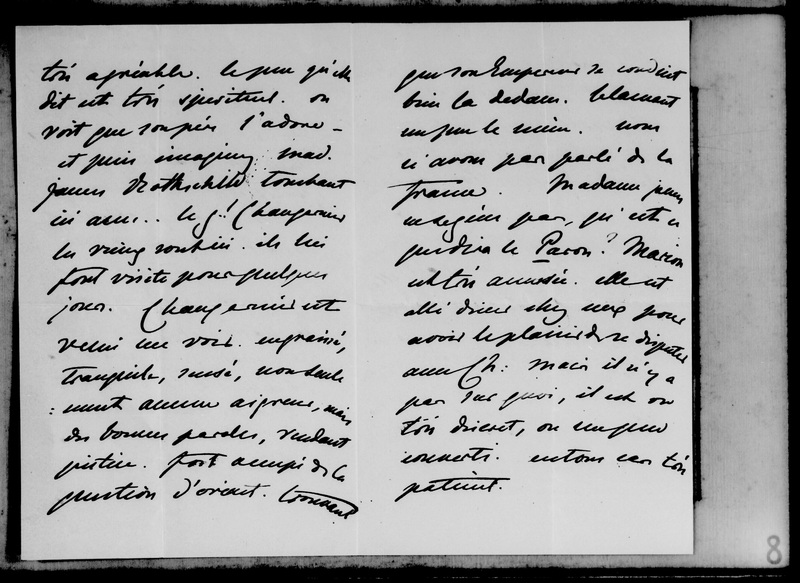 très agréable. le peu qu'elle
dit est très spirituel. on
voit que son père l'adore –
et puis imaginez mad.
James Rothschild tombant
ici avec .. le g.l Changarnier
les vieux ils lui
font visite pour quelques
jours. Changarnier est
venu me voir. engraissé,
tranquille, sensé, non seule
:ment aucune aigreur, mais
des bonnes paroles, rendant
justice. fort occupé de la
question d'orient. trouvant
que son Empereur se conduit
bien là dedans. blamant
un peu le mien. nous
n'avons pas parlé de la
france. Madame James
ne pas, qu'est ce
que dira le Baron? Marion
est très amusée. elle est
allé diner chez eux pour
avoir le plaisir de se disputer
avec Ch: mais il n'y a
pas sur quoi, il est ou
très discret, ou un peu
converti. en tous cas très
patient.
8